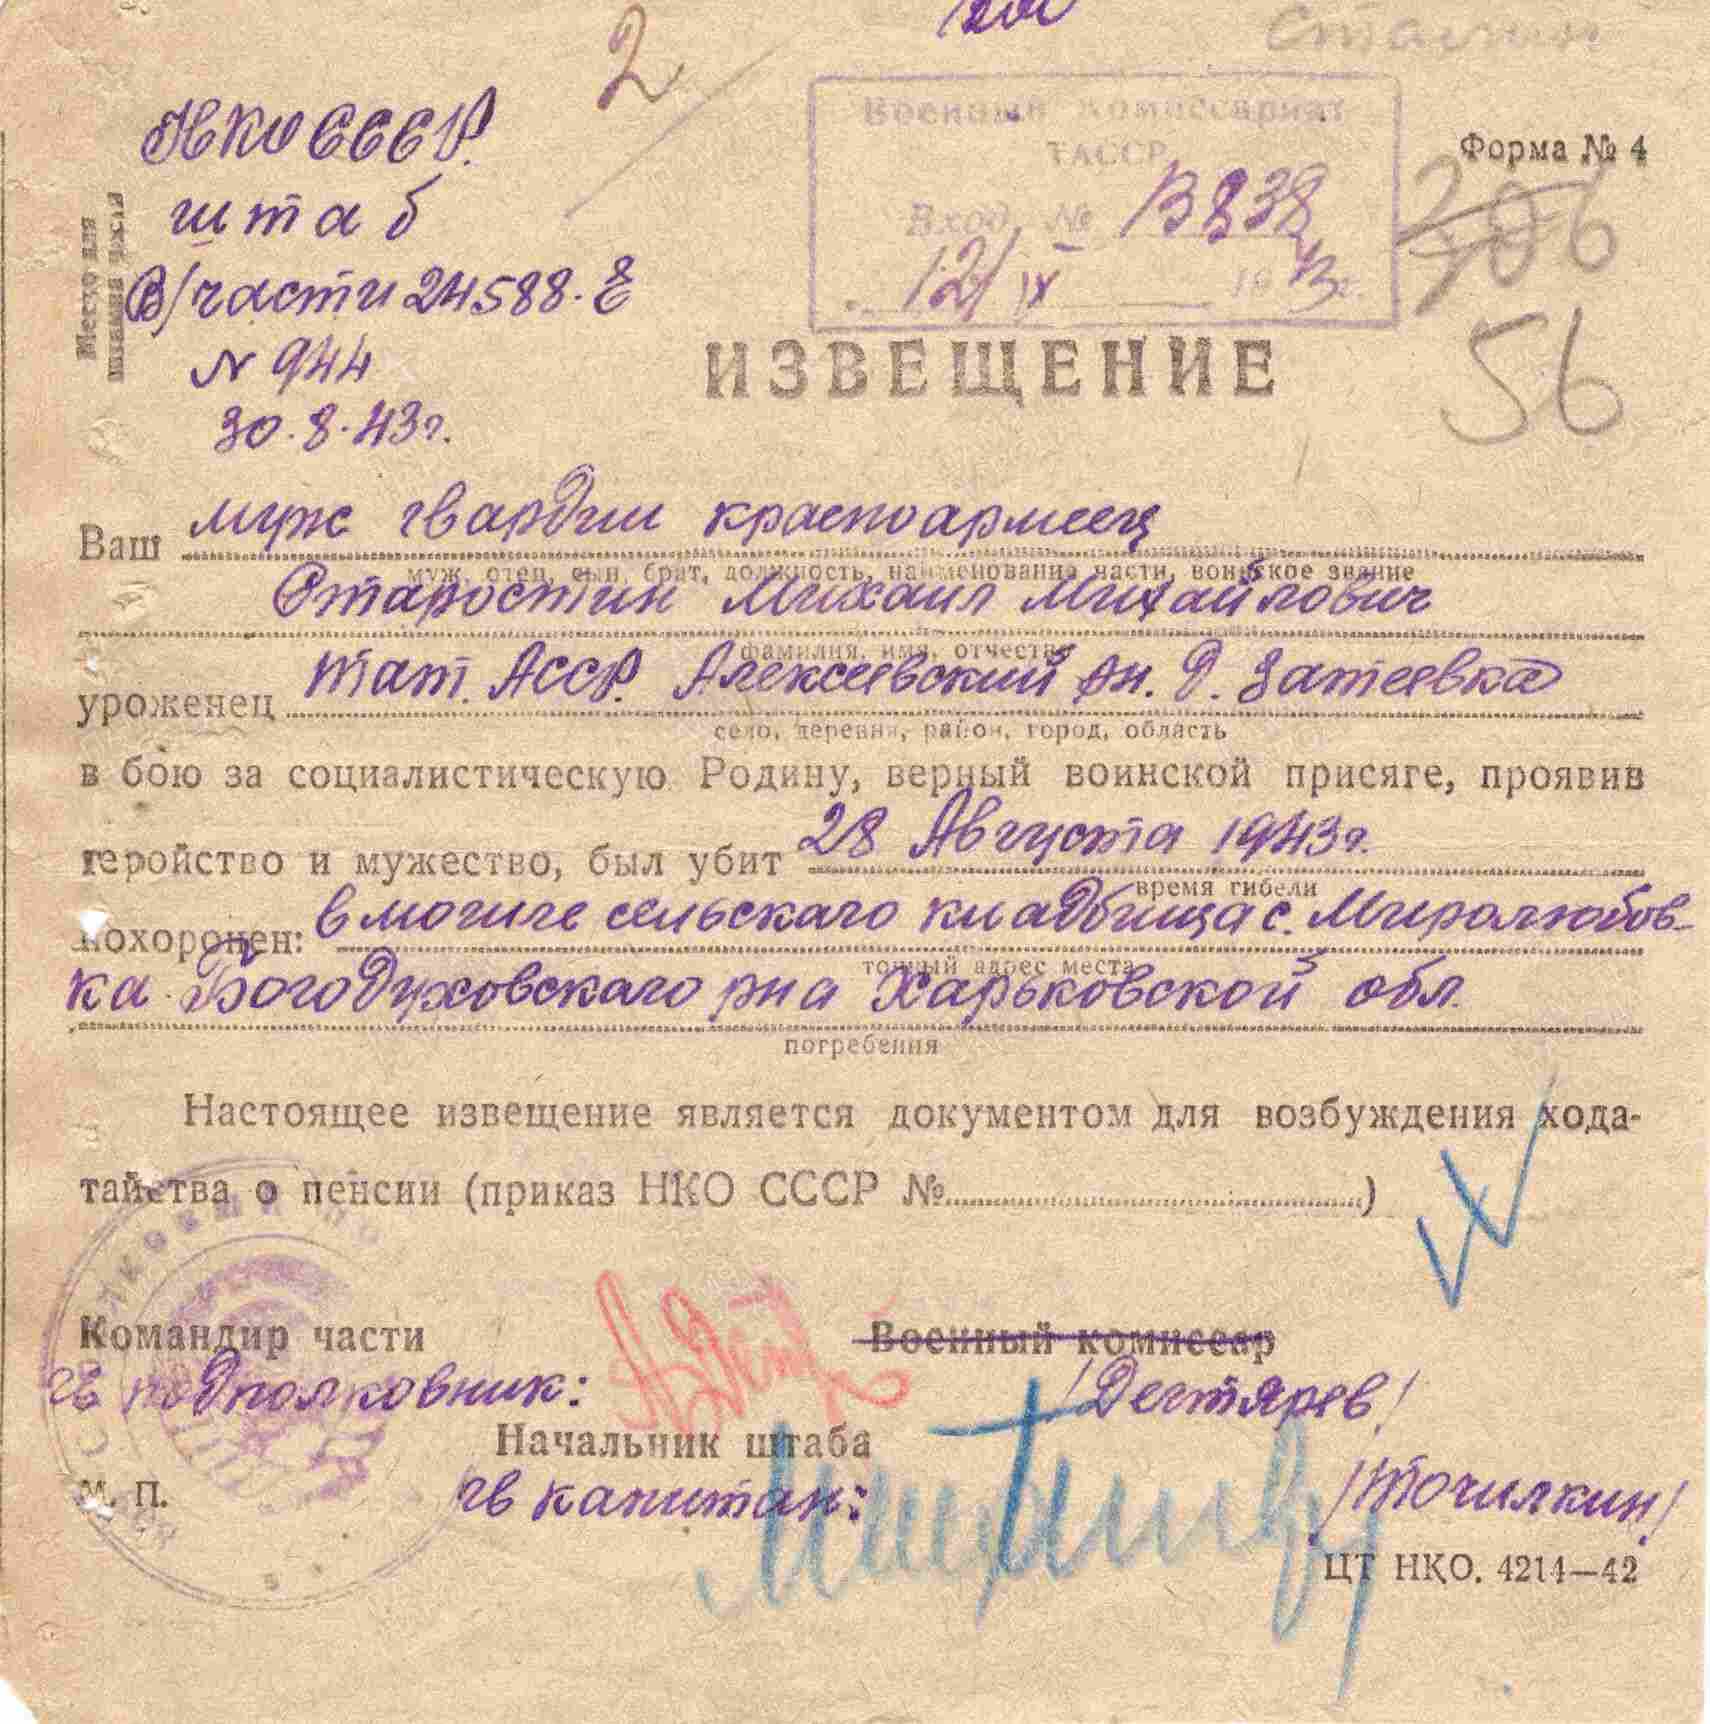 2
НКО СССР.
штаб
В/части 24588-Е
N 944
30.8.43г.
Место для
штампа части
Военный Комиссариат
ТАССР
Вход. № В838
12/IX 1943г.
Форма № 4
56
ИЗВЕЩЕНИЕ
Ваш муж гвардии красноармеец
муж, отец, сын, брат, должность, наименование части, воинское звание
Старостин Михаил Михайлович
фамилия, имя, отчество
уроженец Тат. АССР. Алексеевский рн. д. Затеевка
село, деревня, район, город, область
в бою за социалистическую Родину, верный воинской присяге, проявив
геройство и мужество, был убит 28 Августа 1943г.
время гибели
похоронен: в могиле сельскаго кладбища с. Миролюбов-
точный адрес места
ка Богодуховскаго рна Харьковской обл.
погребения
Настоящее извещение является документом для возбуждения хода-
тайства о пенсии (приказ НКО СССР № )
Командир части
Военный комиссар
гв подполковник: /Дегтярев/
Начальник штаба
М. П.
гв капитан: /Точилкин/
ЦТ НКО. 4214—42